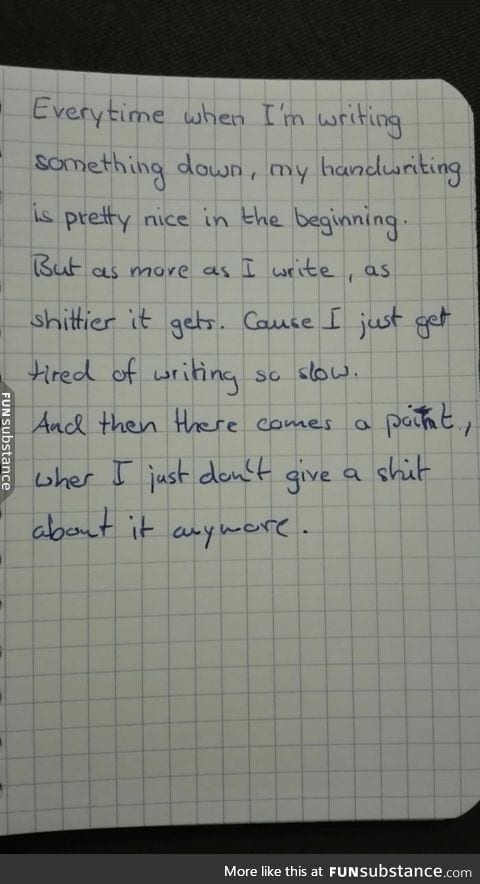 Everytime when I'm writing
something down, my handwriting
is pretty nice in the beginning.
But as more as I write, as
shittier it gets. Cause I just get
tired of writing so slow.
And then there comes a point,
wher I just don't give a shit
about it anymore.
FUNsubstance
More like this at FUNsubstance.com